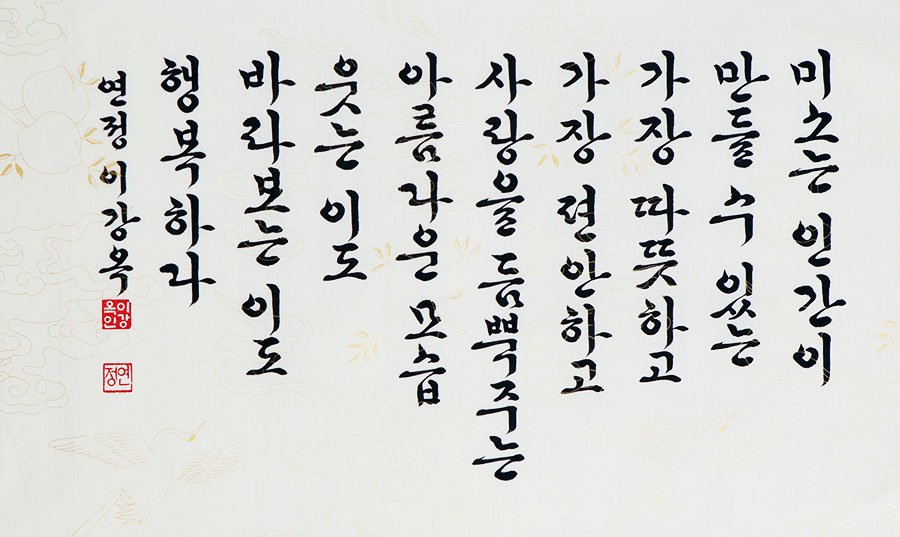 미소는 인간이
만들 수 있는
가장 따뜻하고
가장 편안하고
사랑을 듬뿍주는
아름다운 모습
웃는 이도
바라보는 이도
행복하다
연정 이강옥
이강
옥인
연정